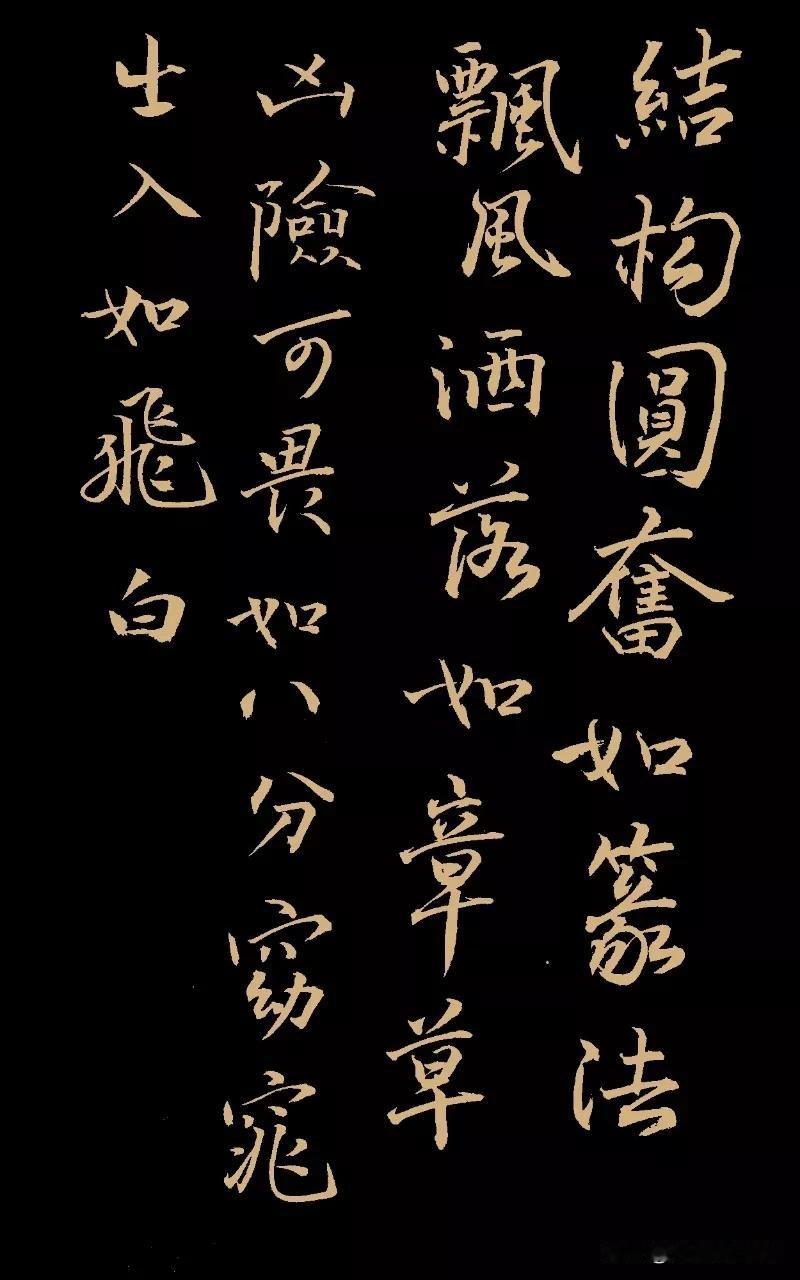 結构圓奮如篆法
飄風洒落如章草
凶險可畏如八分窈窕
出入如飛白